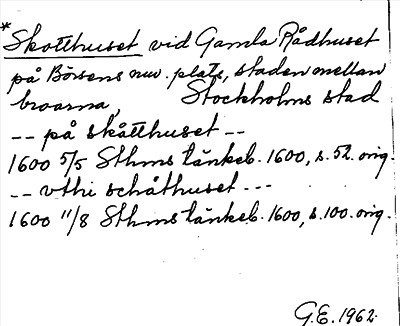 * Skotthuset vid Gamla Rådhuset
på Börsens nuv. plats, staden mellan
broarna, Stockholms stad
-- på skåtthuset --
1600 5/5 Sthms tänkeb. 1600, s. 52. orig.
-- vthi schåthuset ---
1600 11/8 Sthms tänkeb. 1600, s. 100. orig.
G.E. 1962.